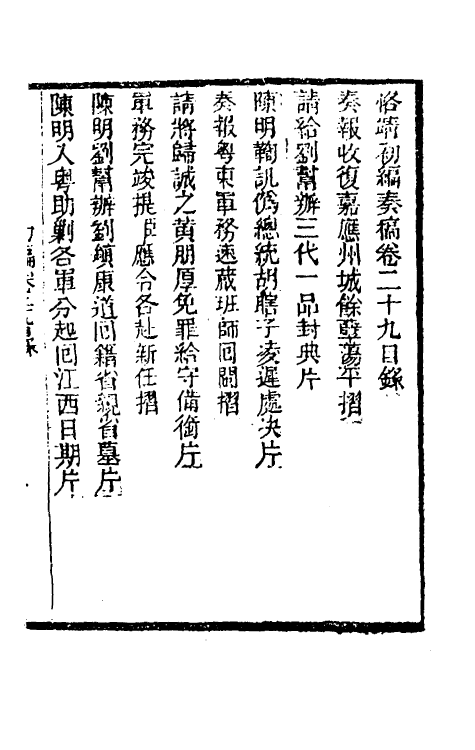 恪靖初編奏稿卷二十九目錄
奏報收復嘉應州城餘孽蕩平摺
請給劉幫辦三代一品封典片
陳明鞫訊僞總統胡瞎子凌遲處決片
奏報粵東軍務速蕆班師回閩摺
請將歸誠之黃朋厚免罪給守備銜片
軍務完竣提臣應令各赴新任摺
陳明劉幫辦劉鎮康道回籍省親省墓片
陳明入粵助剿各軍分起回江西日期片
初編卷二九目錄